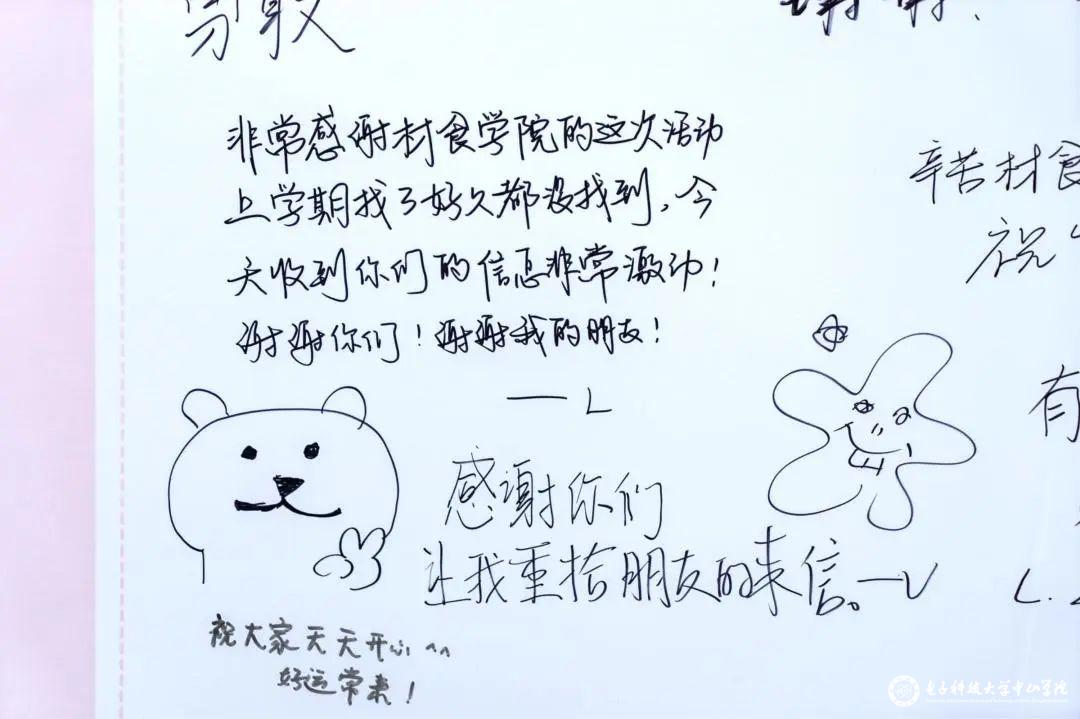 谢谢!
非常感谢材食学院的这次活动
上学期找了好久都没找到,今
天收到你们的信息非常激动!
谢谢你们!谢谢我的朋友!
——L
辛苦材食
祝
有
感谢你们
让我重拾朋友的来信。—V
L.
祝大家天天开心^^
好运常来!
电子科技大学中山学院